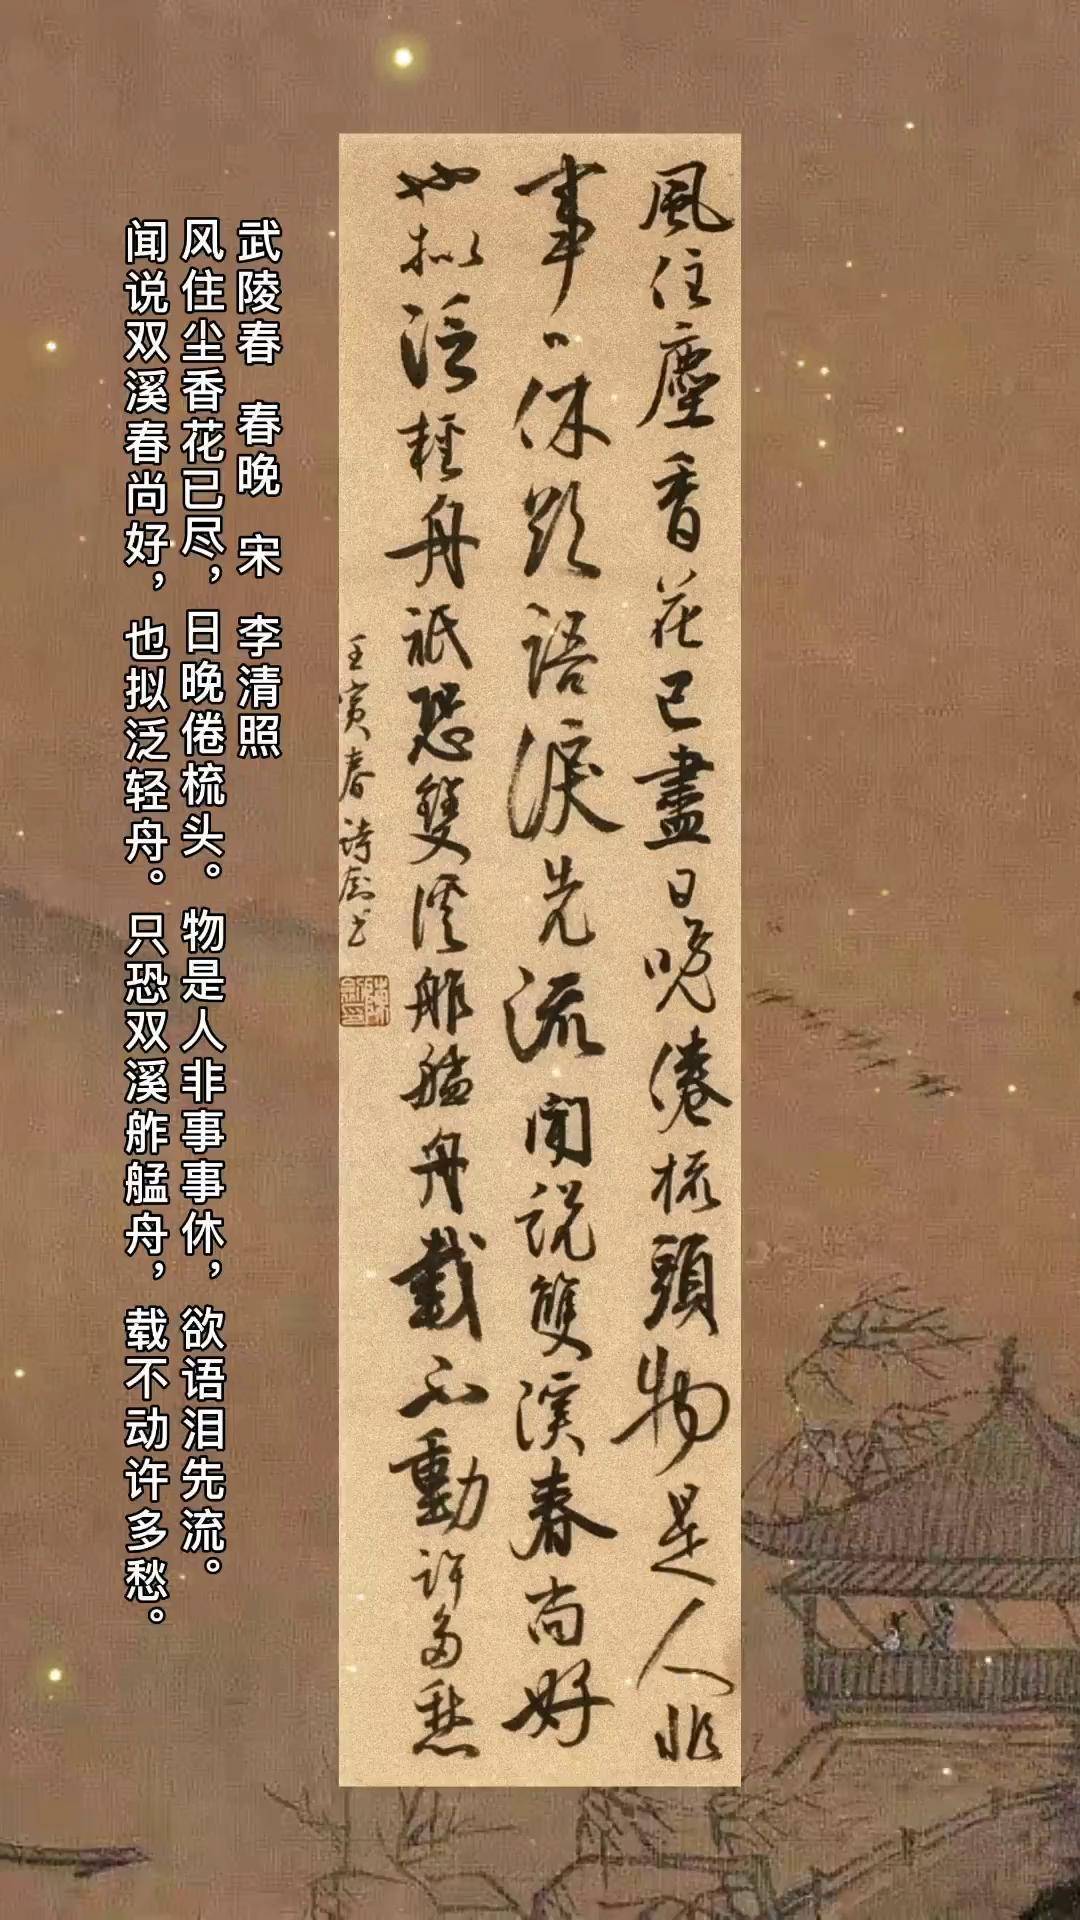 武陵春 春晚 宋 李清照
风住尘香花已尽，日晚倦梳头。物是人非事事休，欲语泪先流。
闻说双溪春尚好，也拟泛轻舟。只恐双溪舴艋舟，载不动许多愁。
風住塵香花已盡日晚倦梳頭物是人非
事〻休欲語淚先流聞說雙溪春尚好
也拟泛輕舟祇恐雙溪舴艋舟載不動許多愁
壬寅春